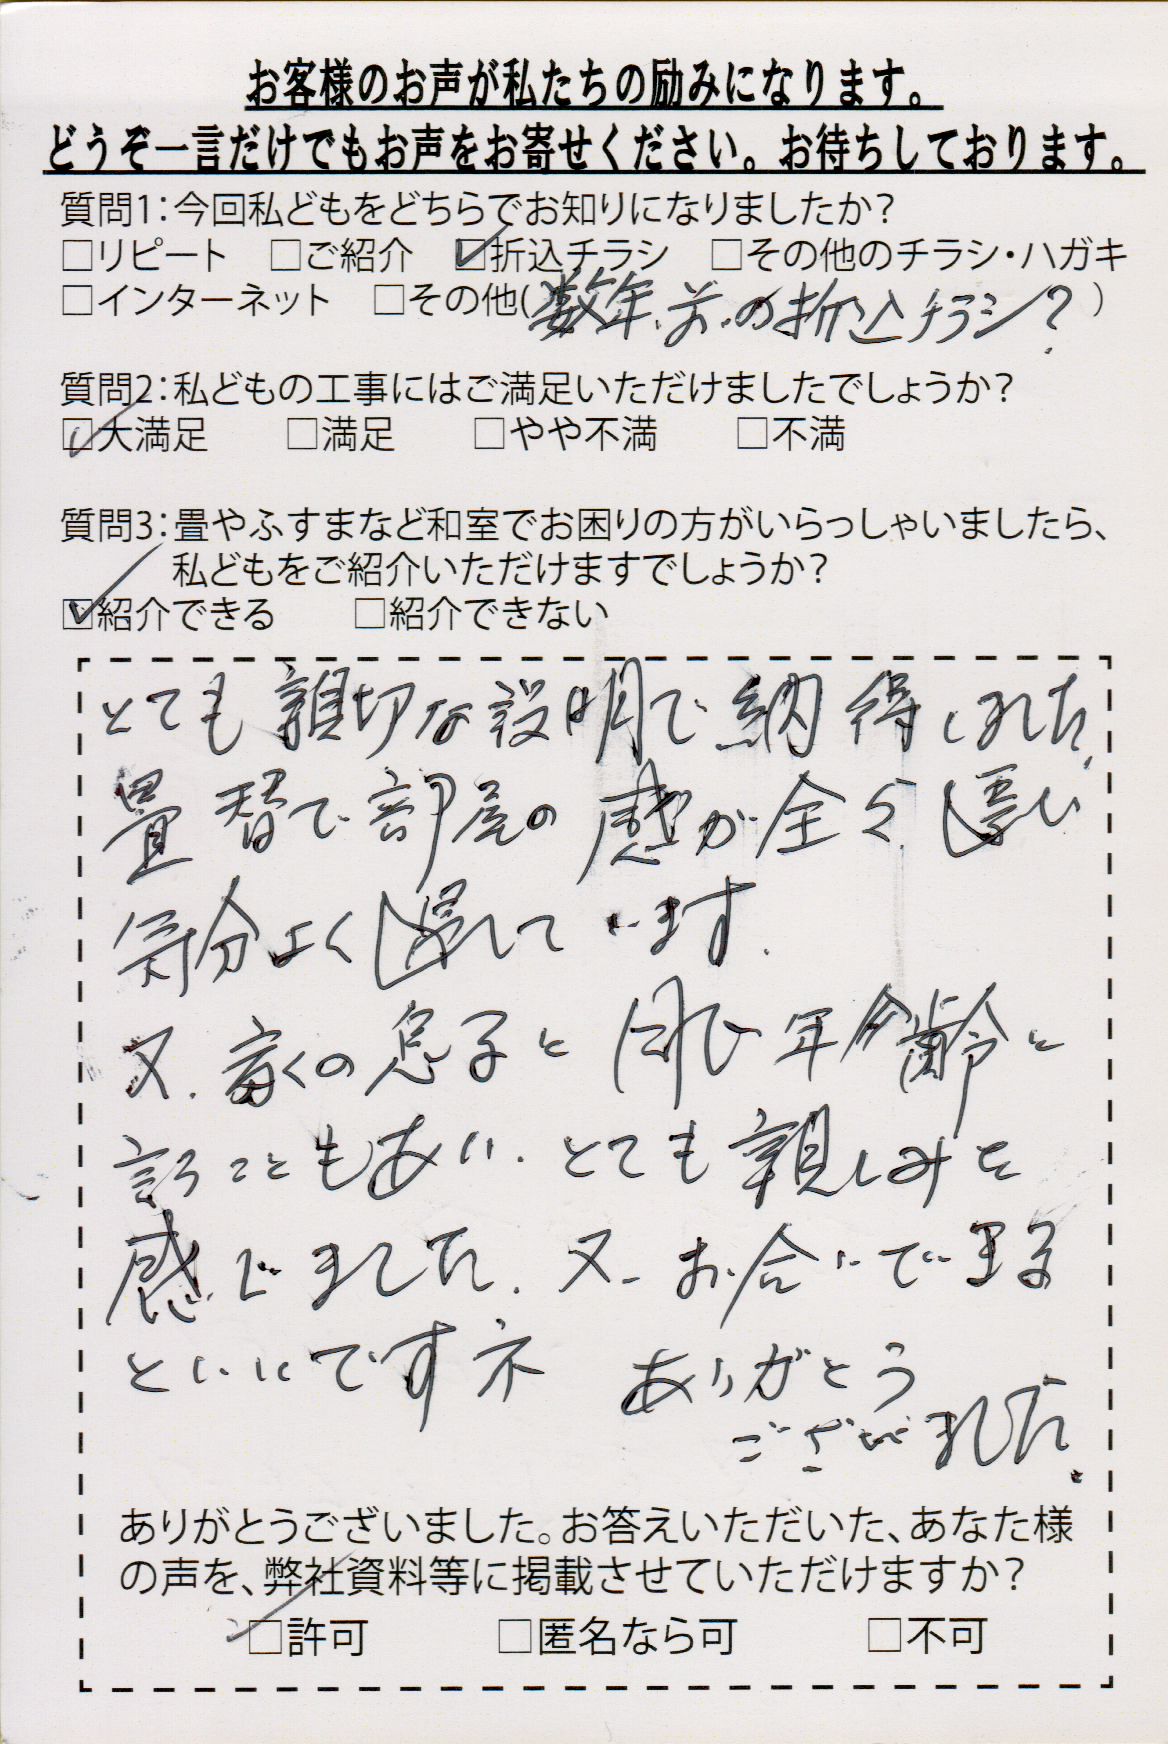 お客様のお声が私たちの励みになります。
どうぞ一言だけでもお声をお寄せください。お待ちしております。
質問1：今回私どもをどちらでお知りになりましたか？
□リピート □ご紹介 ☑折込チラシ □その他のチラシ・ハガキ
□インターネット □その他(数年前の折込チラシ？)
質問2：私どもの工事にはご満足いただけましたでしょうか？
☑大満足 □満足 □やや不満 □不満
質問3：畳やふすまなど和室でお困りの方がいらっしゃいましたら、
私どもをご紹介いただけますでしょうか？
☑紹介できる □紹介できない
とても親切な説明で納得しました
畳替で部屋の感が全く違い
気分よく過しています.
又.家の息子と同じ年齢と
言うこともあり.とても親しみを
感じました.又お会いできる
といいですネ ありがとう
ございました.
ありがとうございました。お答えいただいた、あなた様
の声を、弊社資料等に掲載させていただけますか？
☑許可 □匿名なら可 □不可